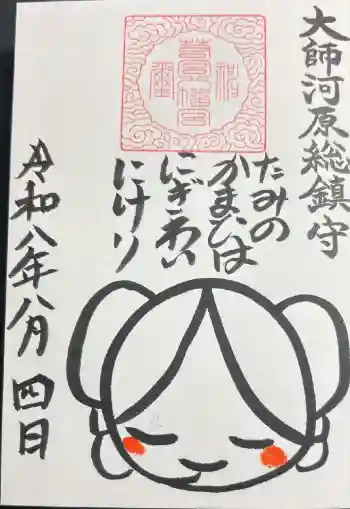 大師河原総鎮守
たみの
かまひは
にぎわい
にけり
令和八年八月四日